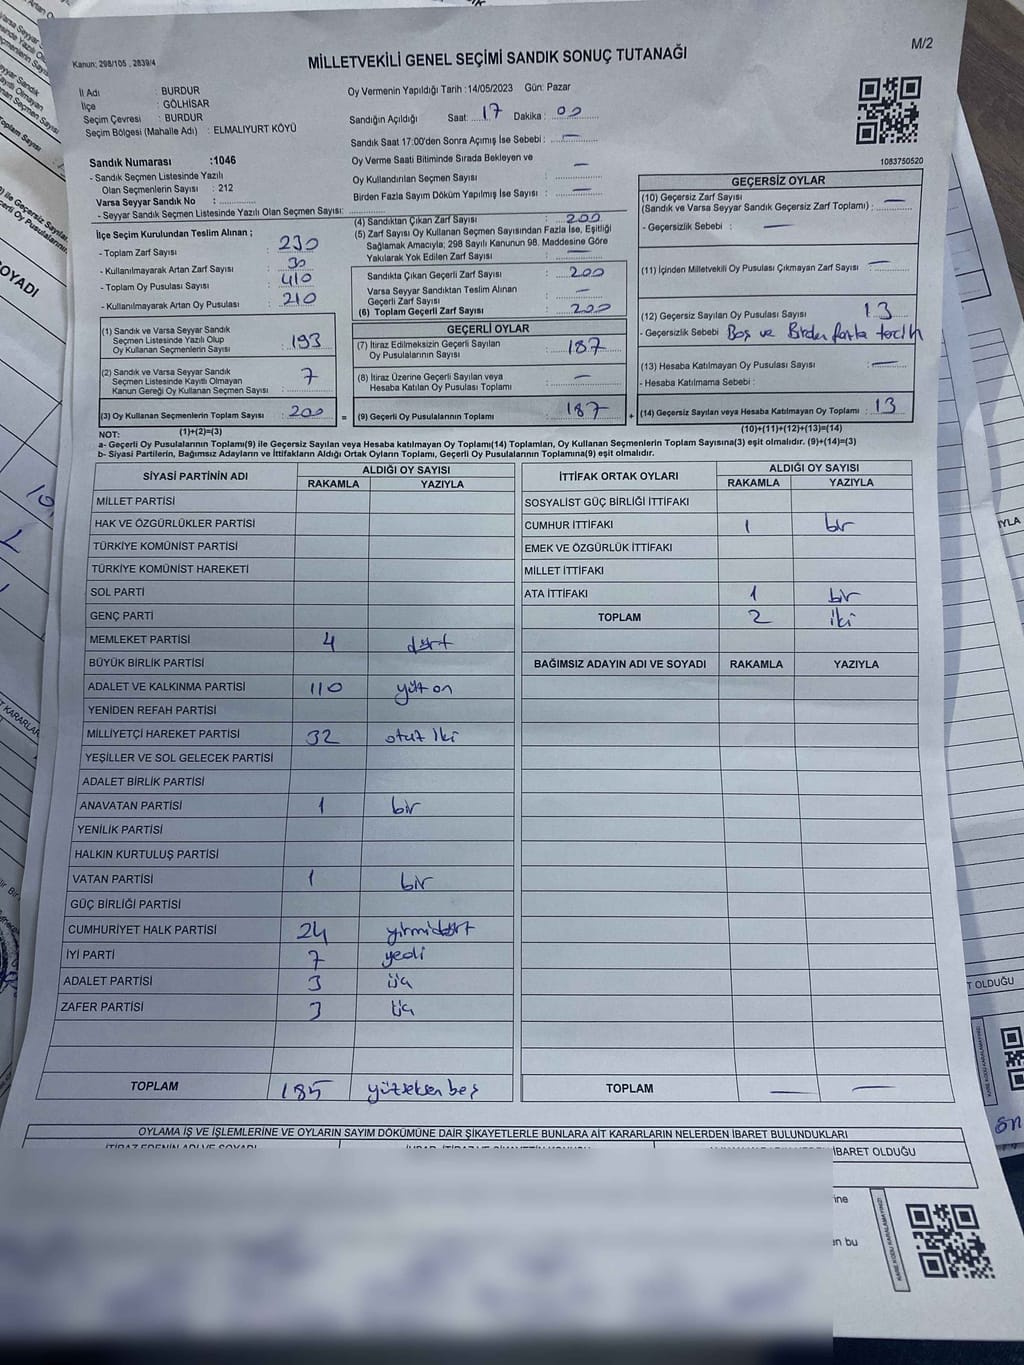 Kanun; 298/105 , 2839/4
MİLLETVEKİLİ GENEL SEÇİMİ SANDIK SONUÇ TUTANAĞI
M/2
İl Adı : BURDUR
İlçe : GÖLHİSAR
Seçim Çevresi : BURDUR
Seçim Bölgesi (Mahalle Adı) : ELMALIYURT KÖYÜ
Sandık Numarası :1046
- Sandık Seçmen Listesinde Yazılı
Olan Seçmenlerin Sayısı : 212
Varsa Seyyar Sandık No :
- Seyyar Sandık Seçmen Listesinde Yazılı Olan Seçmen Sayısı:
Oy Vermenin Yapıldığı Tarih :14/05/2023 Gün: Pazar
Sandığın Açıldığı Saat: 17 Dakika : 00
Sandık Saat 17:00'den Sonra Açımış İse Sebebi : —
Oy Verme Saati Bitiminde Sırada Bekleyen ve
Oy Kullandırılan Seçmen Sayısı : —
Birden Fazla Sayım Döküm Yapılmış İse Sayısı : —
1083750520
İlçe Seçim Kurulundan Teslim Alınan ;
- Toplam Zarf Sayısı : 230
- Kullanılmayarak Artan Zarf Sayısı : 30
- Toplam Oy Pusulası Sayısı : 410
- Kullanılmayarak Artan Oy Pusulası : 210
(1) Sandık ve Varsa Seyyar Sandık
Seçmen Listesinde Yazılı Olup
Oy Kullanan Seçmenlerin Sayısı : 193
(2) Sandık ve Varsa Seyyar Sandık
Seçmen Listesinde Kayıtlı Olmayan
Kanun Gereği Oy Kullanan Seçmen Sayısı : 7
(3) Oy Kullanan Seçmenlerin Toplam Sayısı : 200
(1)+(2)=(3)
(4) Sandıktan Çıkan Zarf Sayısı : 200
(5) Zarf Sayısı Oy Kullanan Seçmen Sayısından Fazla İse, Eşitliği
Sağlamak Amacıyla; 298 Sayılı Kanunun 98. Maddesine Göre
Yakılarak Yok Edilen Zarf Sayısı : —
Sandıkta Çıkan Geçerli Zarf Sayısı : 200
Varsa Seyyar Sandıktan Teslim Alınan
Geçerli Zarf Sayısı : —
(6) Toplam Geçerli Zarf Sayısı : 200
GEÇERLİ OYLAR
(7) İtiraz Edilmeksizin Geçerli Sayılan
Oy Pusulalarının Sayısı : 187
(8) İtiraz Üzerine Geçerli Sayılan veya
Hesaba Katılan Oy Pusulası Toplamı : —
= (9) Geçerli Oy Pusulalarının Toplamı : 187
GEÇERSİZ OYLAR
(10) Geçersiz Zarf Sayısı
(Sandık ve Varsa Seyyar Sandık Geçersiz Zarf Toplamı) : —
- Geçersizlik Sebebi : —
(11) İçinden Milletvekili Oy Pusulası Çıkmayan Zarf Sayısı : —
(12) Geçersiz Sayılan Oy Pusulası Sayısı : 13
- Geçersizlik Sebebi Boş ve Birden fazla tercih
(13) Hesaba Katılmayan Oy Pusulası Sayısı : —
- Hesaba Katılmama Sebebi :
+ (14) Geçersiz Sayılan veya Hesaba Katılmayan Oy Toplamı : 13
(10)+(11)+(12)+(13)=(14)
NOT:
a- Geçerli Oy Pusulalarının Toplamı(9) ile Geçersiz Sayılan veya Hesaba katılmayan Oy Toplamı(14) Toplamları, Oy Kullanan Seçmenlerin Toplam Sayısına(3) eşit olmalıdır. (9)+(14)=(3)
b- Siyasi Partilerin, Bağımsız Adayların ve İttifakların Aldığı Ortak Oyların Toplamı, Geçerli Oy Pusulalarının Toplamına(9) eşit olmalıdır.
SİYASİ PARTİNİN ADI ALDIĞI OY SAYISI
RAKAMLA YAZIYLA
MİLLET PARTİSİ
HAK VE ÖZGÜRLÜKLER PARTİSİ
TÜRKİYE KOMÜNİST PARTİSİ
TÜRKİYE KOMÜNİST HAREKETİ
SOL PARTİ
GENÇ PARTİ
MEMLEKET PARTİSİ 4 dört
BÜYÜK BİRLİK PARTİSİ
ADALET VE KALKINMA PARTİSİ 110 yüz on
YENİDEN REFAH PARTİSİ
MİLLİYETÇİ HAREKET PARTİSİ 32 otuz iki
YEŞİLLER VE SOL GELECEK PARTİSİ
ADALET BİRLİK PARTİSİ
ANAVATAN PARTİSİ 1 bir
YENİLİK PARTİSİ
HALKIN KURTULUŞ PARTİSİ
VATAN PARTİSİ 1 bir
GÜÇ BİRLİĞİ PARTİSİ
CUMHURİYET HALK PARTİSİ 24 yirmidört
İYİ PARTİ 7 yedi
ADALET PARTİSİ 3 üç
ZAFER PARTİSİ 3 üç
TOPLAM 185 yüzseksen beş
İTTİFAK ORTAK OYLARI ALDIĞI OY SAYISI
RAKAMLA YAZIYLA
SOSYALİST GÜÇ BİRLİĞİ İTTİFAKI
CUMHUR İTTİFAKI 1 bir
EMEK VE ÖZGÜRLÜK İTTİFAKI
MİLLET İTTİFAKI
ATA İTTİFAKI 1 bir
TOPLAM 2 iki
BAĞIMSIZ ADAYIN ADI VE SOYADI RAKAMLA YAZIYLA
TOPLAM — —
OYLAMA İŞ VE İŞLEMLERİNE VE OYLARIN SAYIM DÖKÜMÜNE DAİR ŞİKAYETLERLE BUNLARA AİT KARARLARIN NELERDEN İBARET BULUNDUKLARI
İTİRAZ EDENİN ADI VE SOYADI
İBARET OLDUĞU
KARE KODU KARALAMAYINIZ!